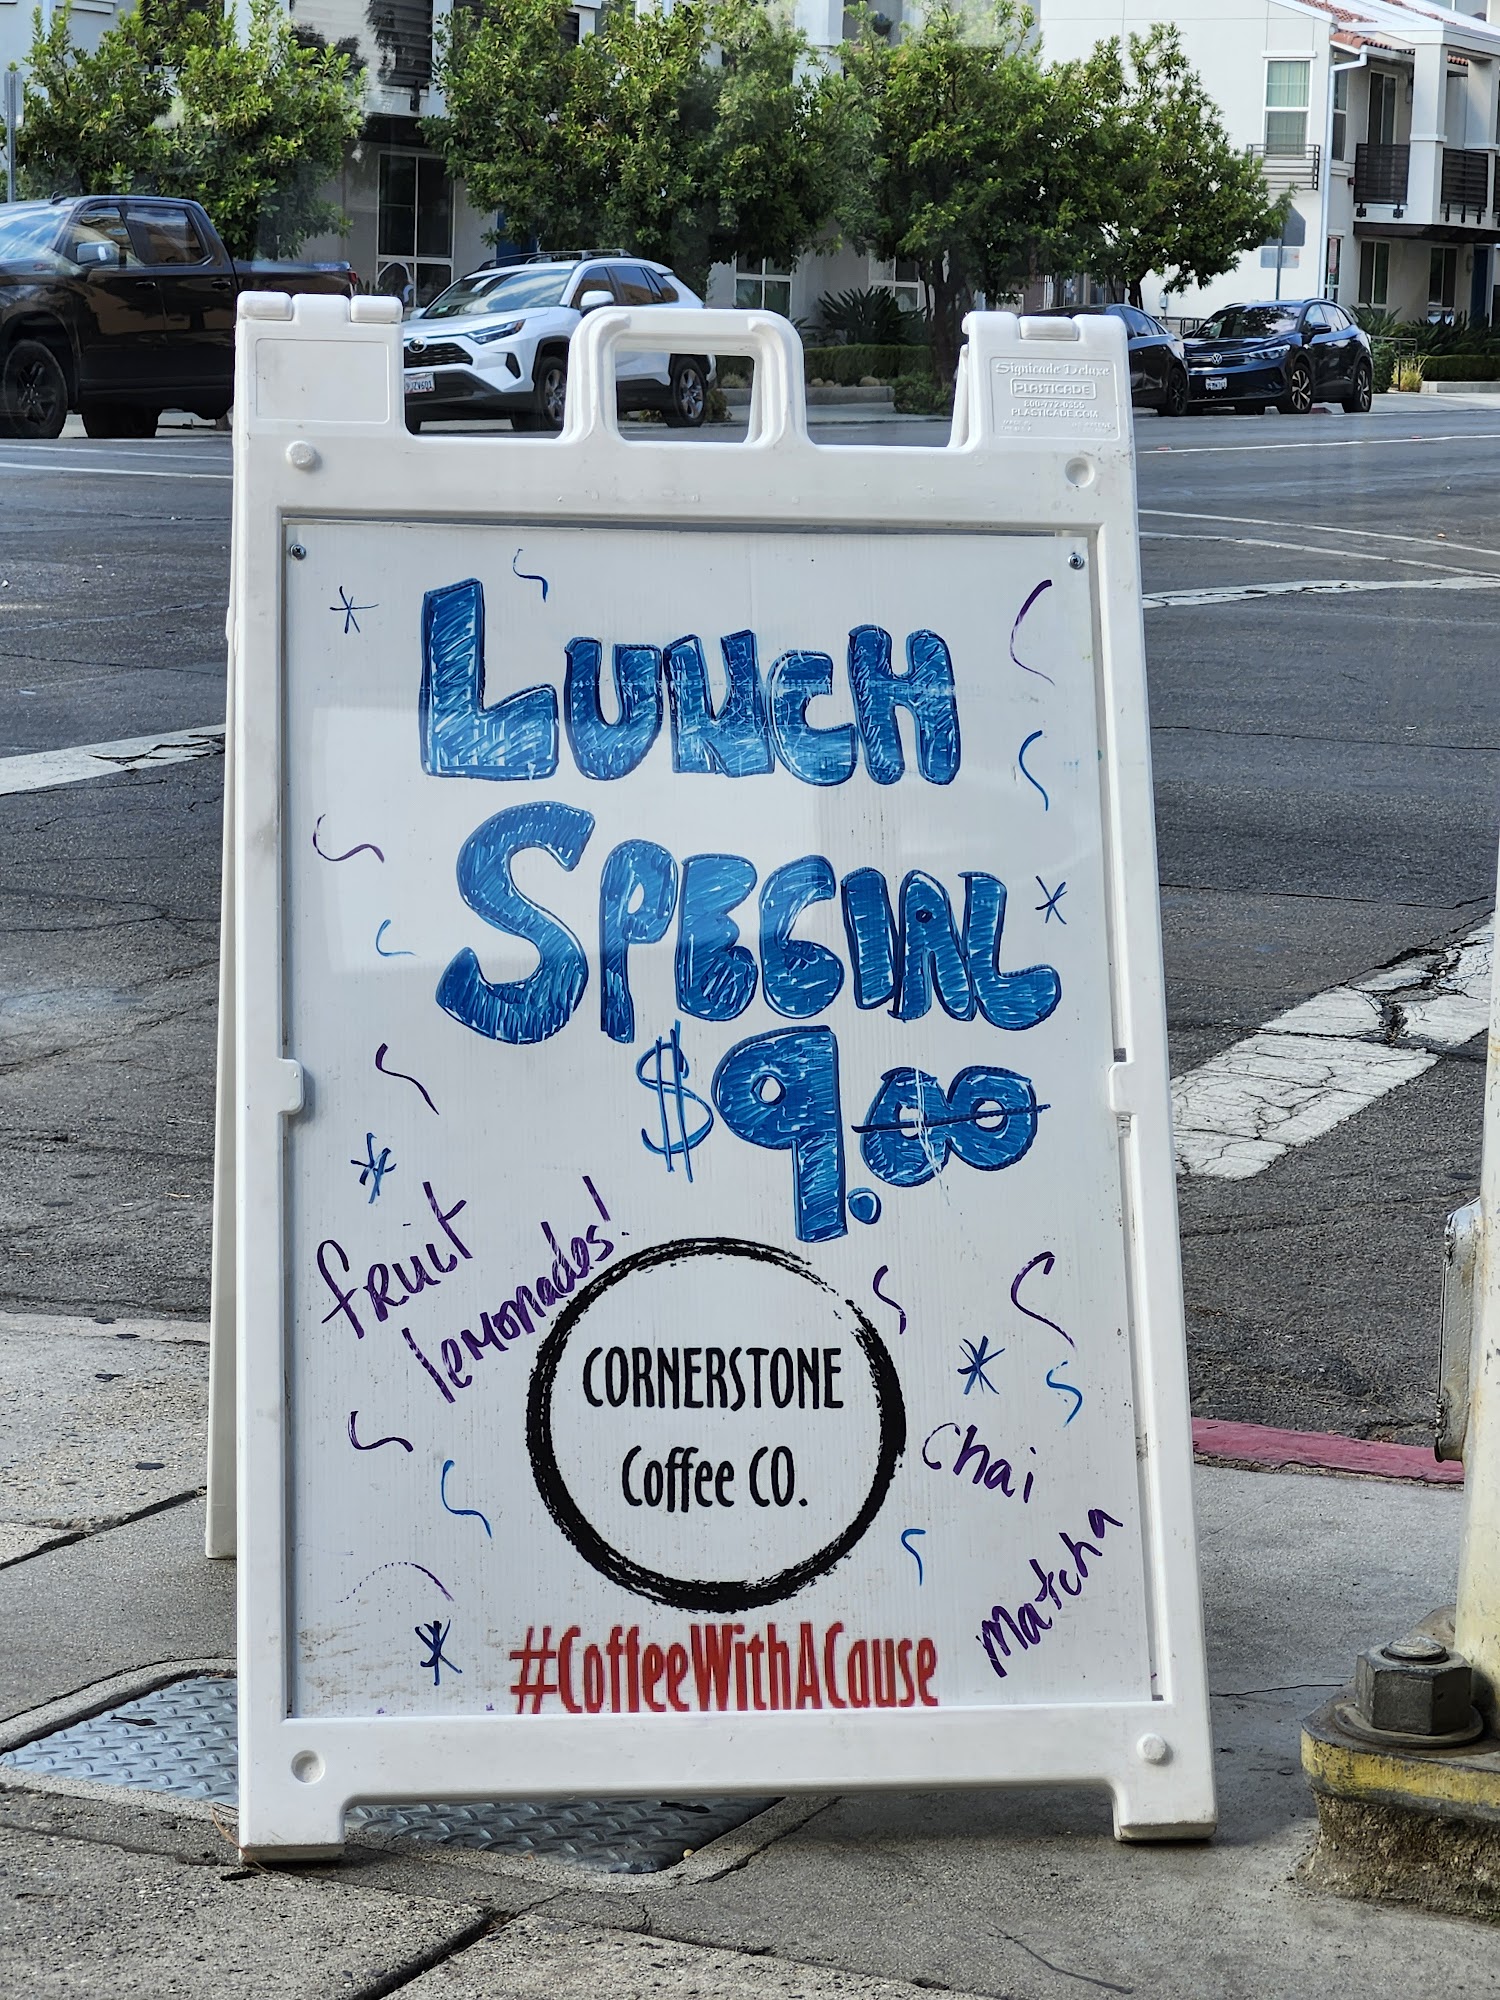 Signicade Deluxe
PLASTICADE
800-772-0355
PLASTICADE.COM
LUNCH
SPECIAL
$9.00
fruit
lemonades!
CORNERSTONE
Coffee CO.
Chai
Matcha
#CoffeeWithACause